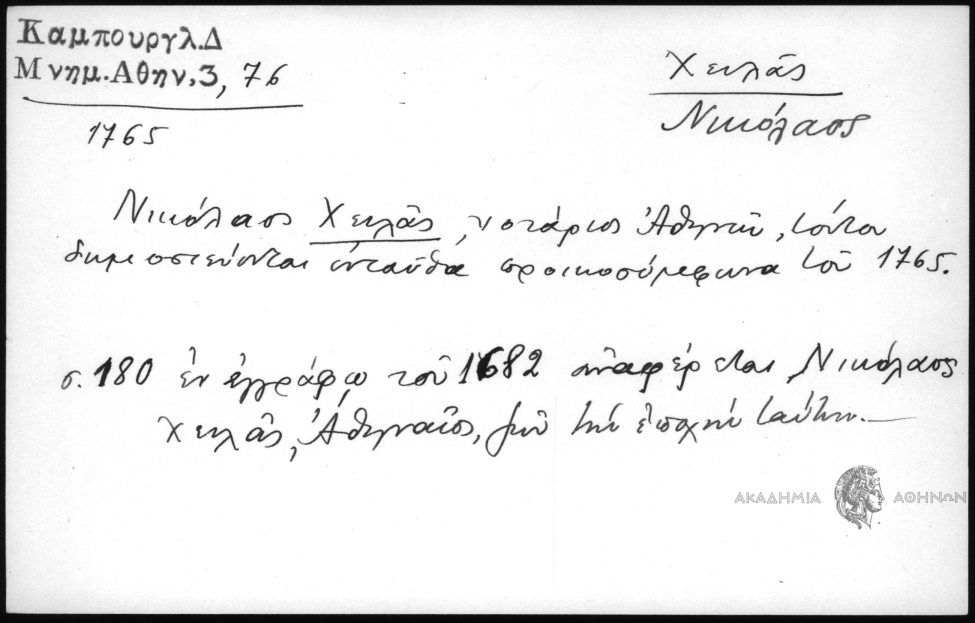 Καμπουργλ.Δ
Μνημ.Αθην.3, 76
1765
Χειλᾶς
Νικόλαος
Νικόλαος Χειλᾶς, νοτάριος Ἀθηνῶν, τούτου
δημοσιεύονται ἐνταῦθα προικοσύμφωνα τοῦ 1765.
σ. 180 ἐν ἐγγράφῳ τοῦ 1682 ἀναφέρεται Νικόλαος
Χειλᾶς, Ἀθηναῖος, ζῶν τὴν ἐποχὴν ταύτην.—
ΑΚΑΔΗΜΙΑ ΑΘΗΝΩΝ